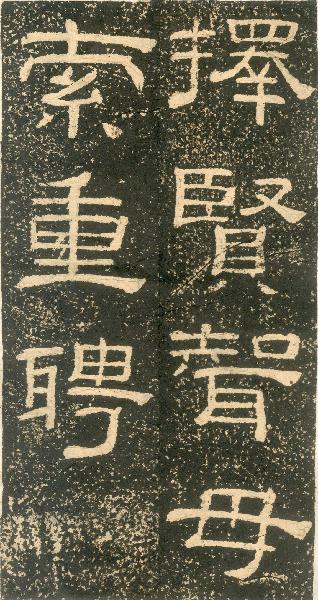 擇賢聟毋
索重聘